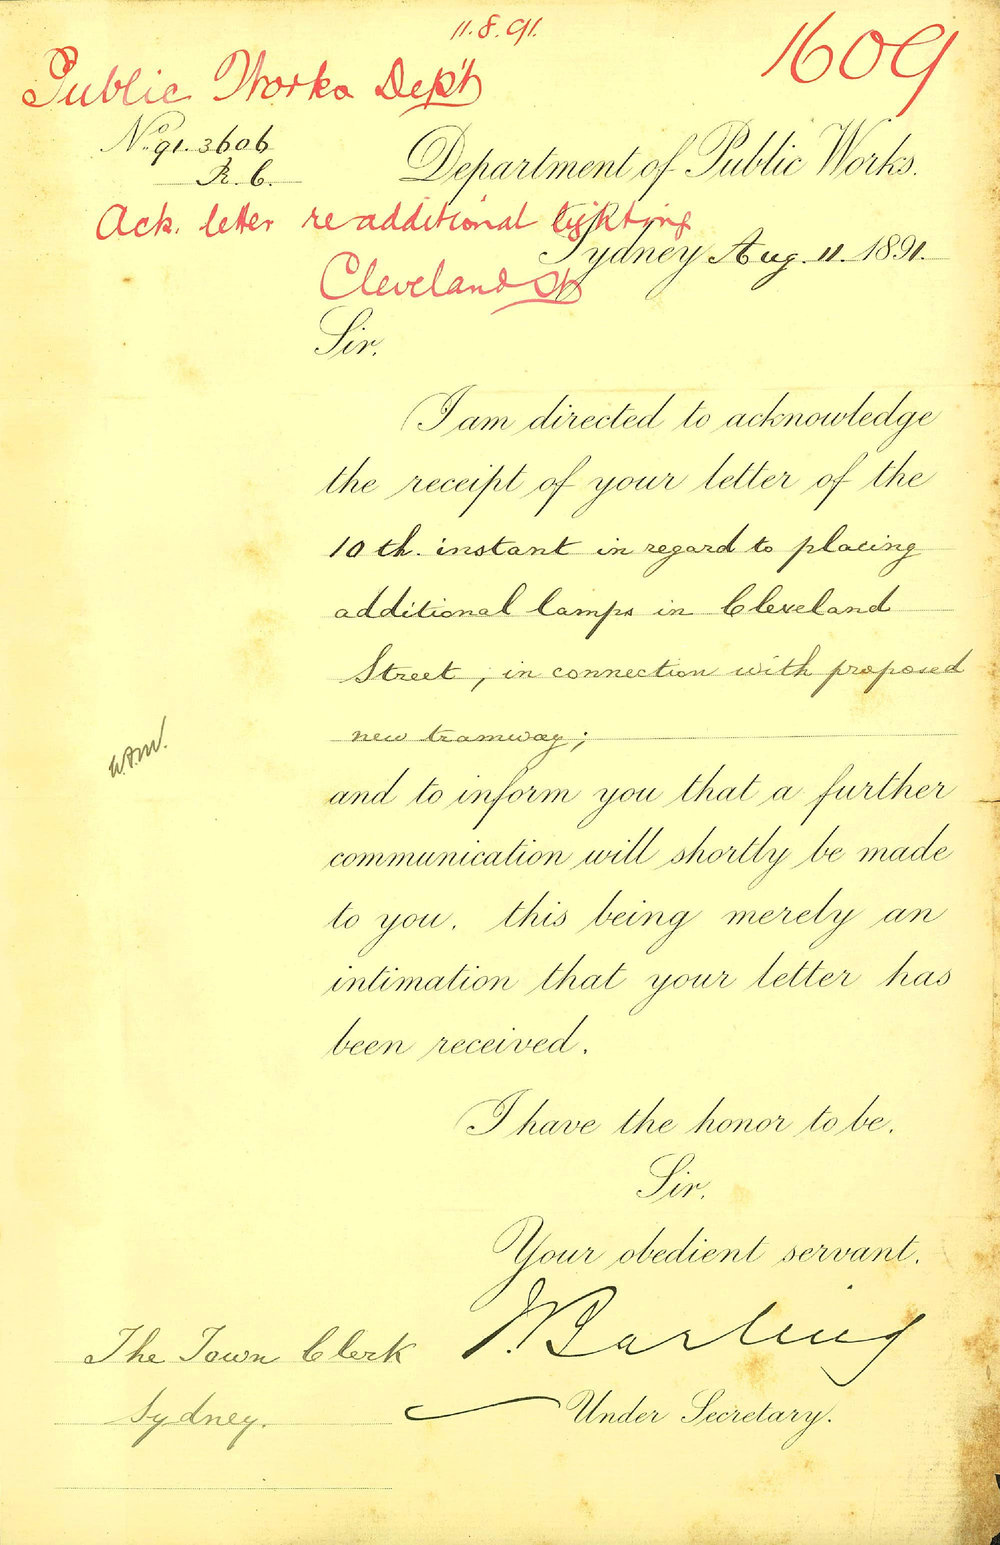 11.8.91.
1609
Public Works Dep't
No. 91.3606
R.C.
Department of Public Works.
Ack. letter re additional lighting
Sydney Aug. 11. 1891.
Cleveland St
Sir,
I am directed to acknowledge
the receipt of your letter of the
10th. instant in regard to placing
additional lamps in Cleveland
Street, in connection with proposed
new tramway;
and to inform you that a further
communication will shortly be made
to you, this being merely an
intimation that your letter has
been received.
I have the honor to be,
Sir,
Your obedient servant,
J. Barling
The Town Clerk
Sydney.
Under Secretary.